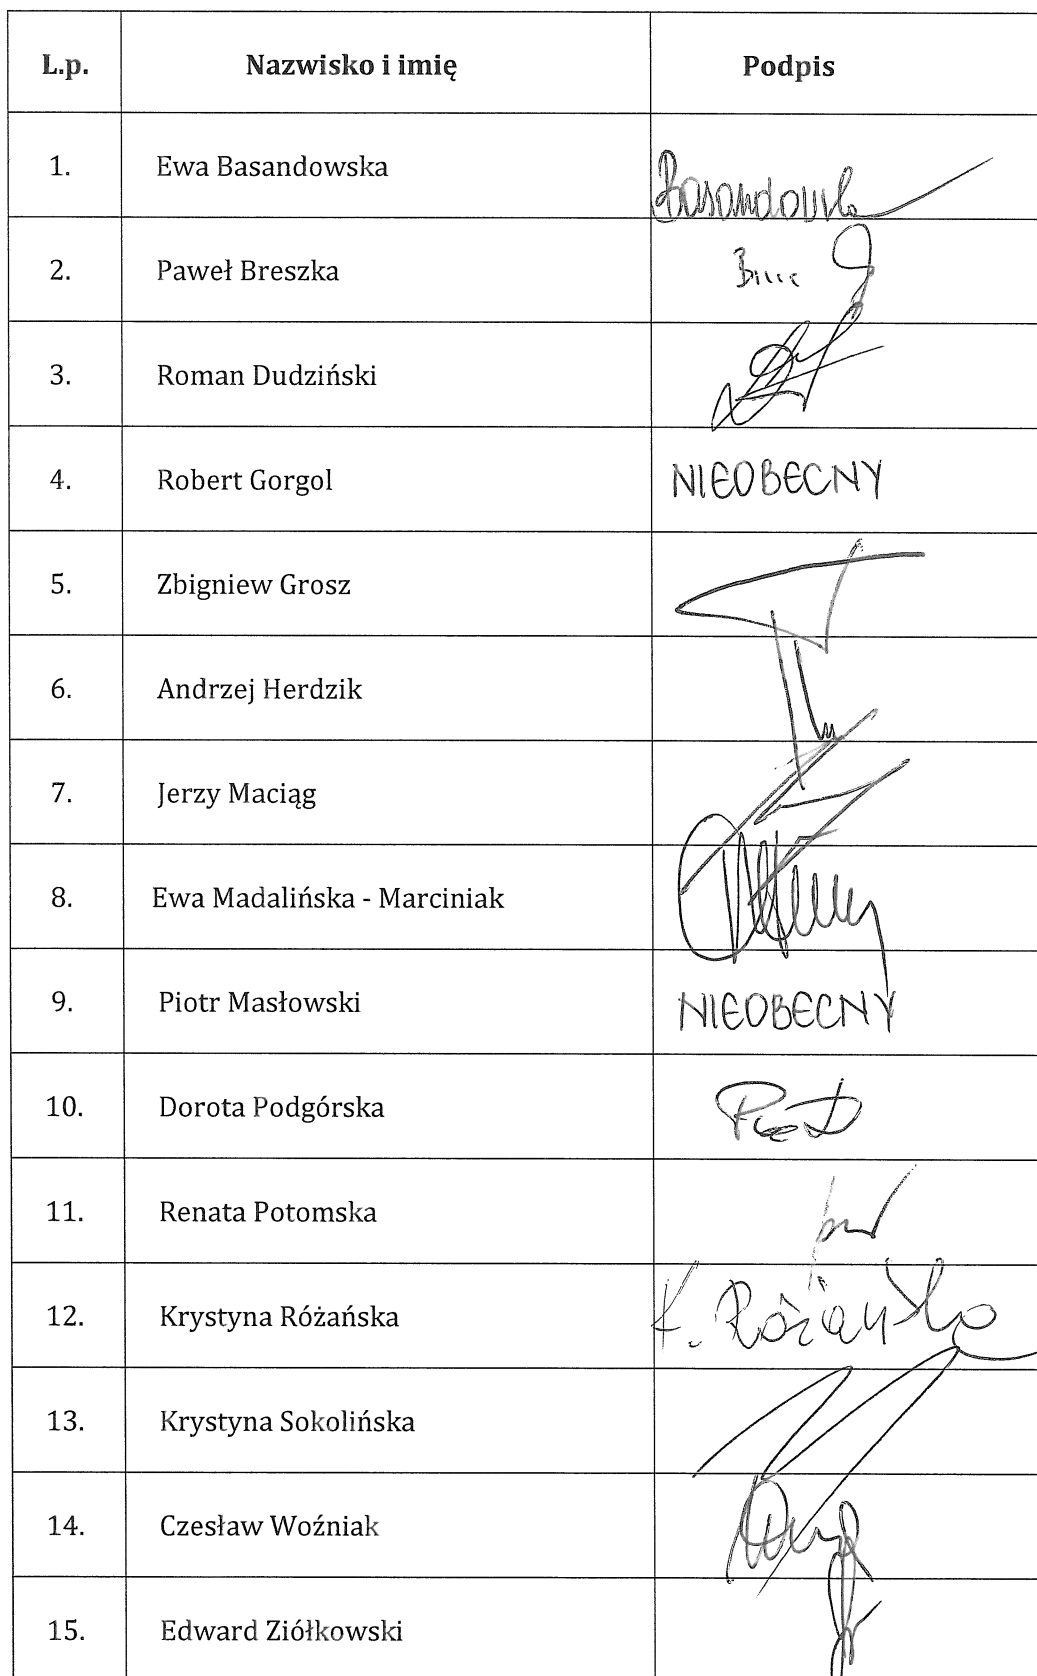 L.p. Nazwisko i imię Podpis
1. Ewa Basandowska Basandowska
2. Paweł Breszka
3. Roman Dudziński
4. Robert Gorgol NIEOBECNY
5. Zbigniew Grosz
6. Andrzej Herdzik
7. Jerzy Maciąg
8. Ewa Madalińska - Marciniak
9. Piotr Masłowski NIEOBECNY
10. Dorota Podgórska
11. Renata Potomska
12. Krystyna Różańska K. Różańska
13. Krystyna Sokolińska
14. Czesław Woźniak
15. Edward Ziółkowski